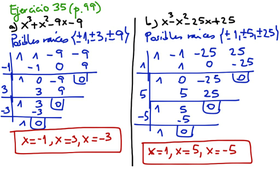 Ejercicio 35 (p.99)
a) x³+x²-9x-9
Posibles raíces (±1,±3,±9)
1 1 -9 -9
-1 -1 0 9
1 0 -9 0
3 3 9
1 3 0
-3 -3
1 0
x=-1, x=3, x=-3
b) x³-x²-25x+25
Posibles raíces (±1,±5,±25)
1 -1 -25 25
1 1 0 -25
1 0 -25 0
5 5 25
1 5 0
-5 -5
1 0
x=1, x=5, x=-5